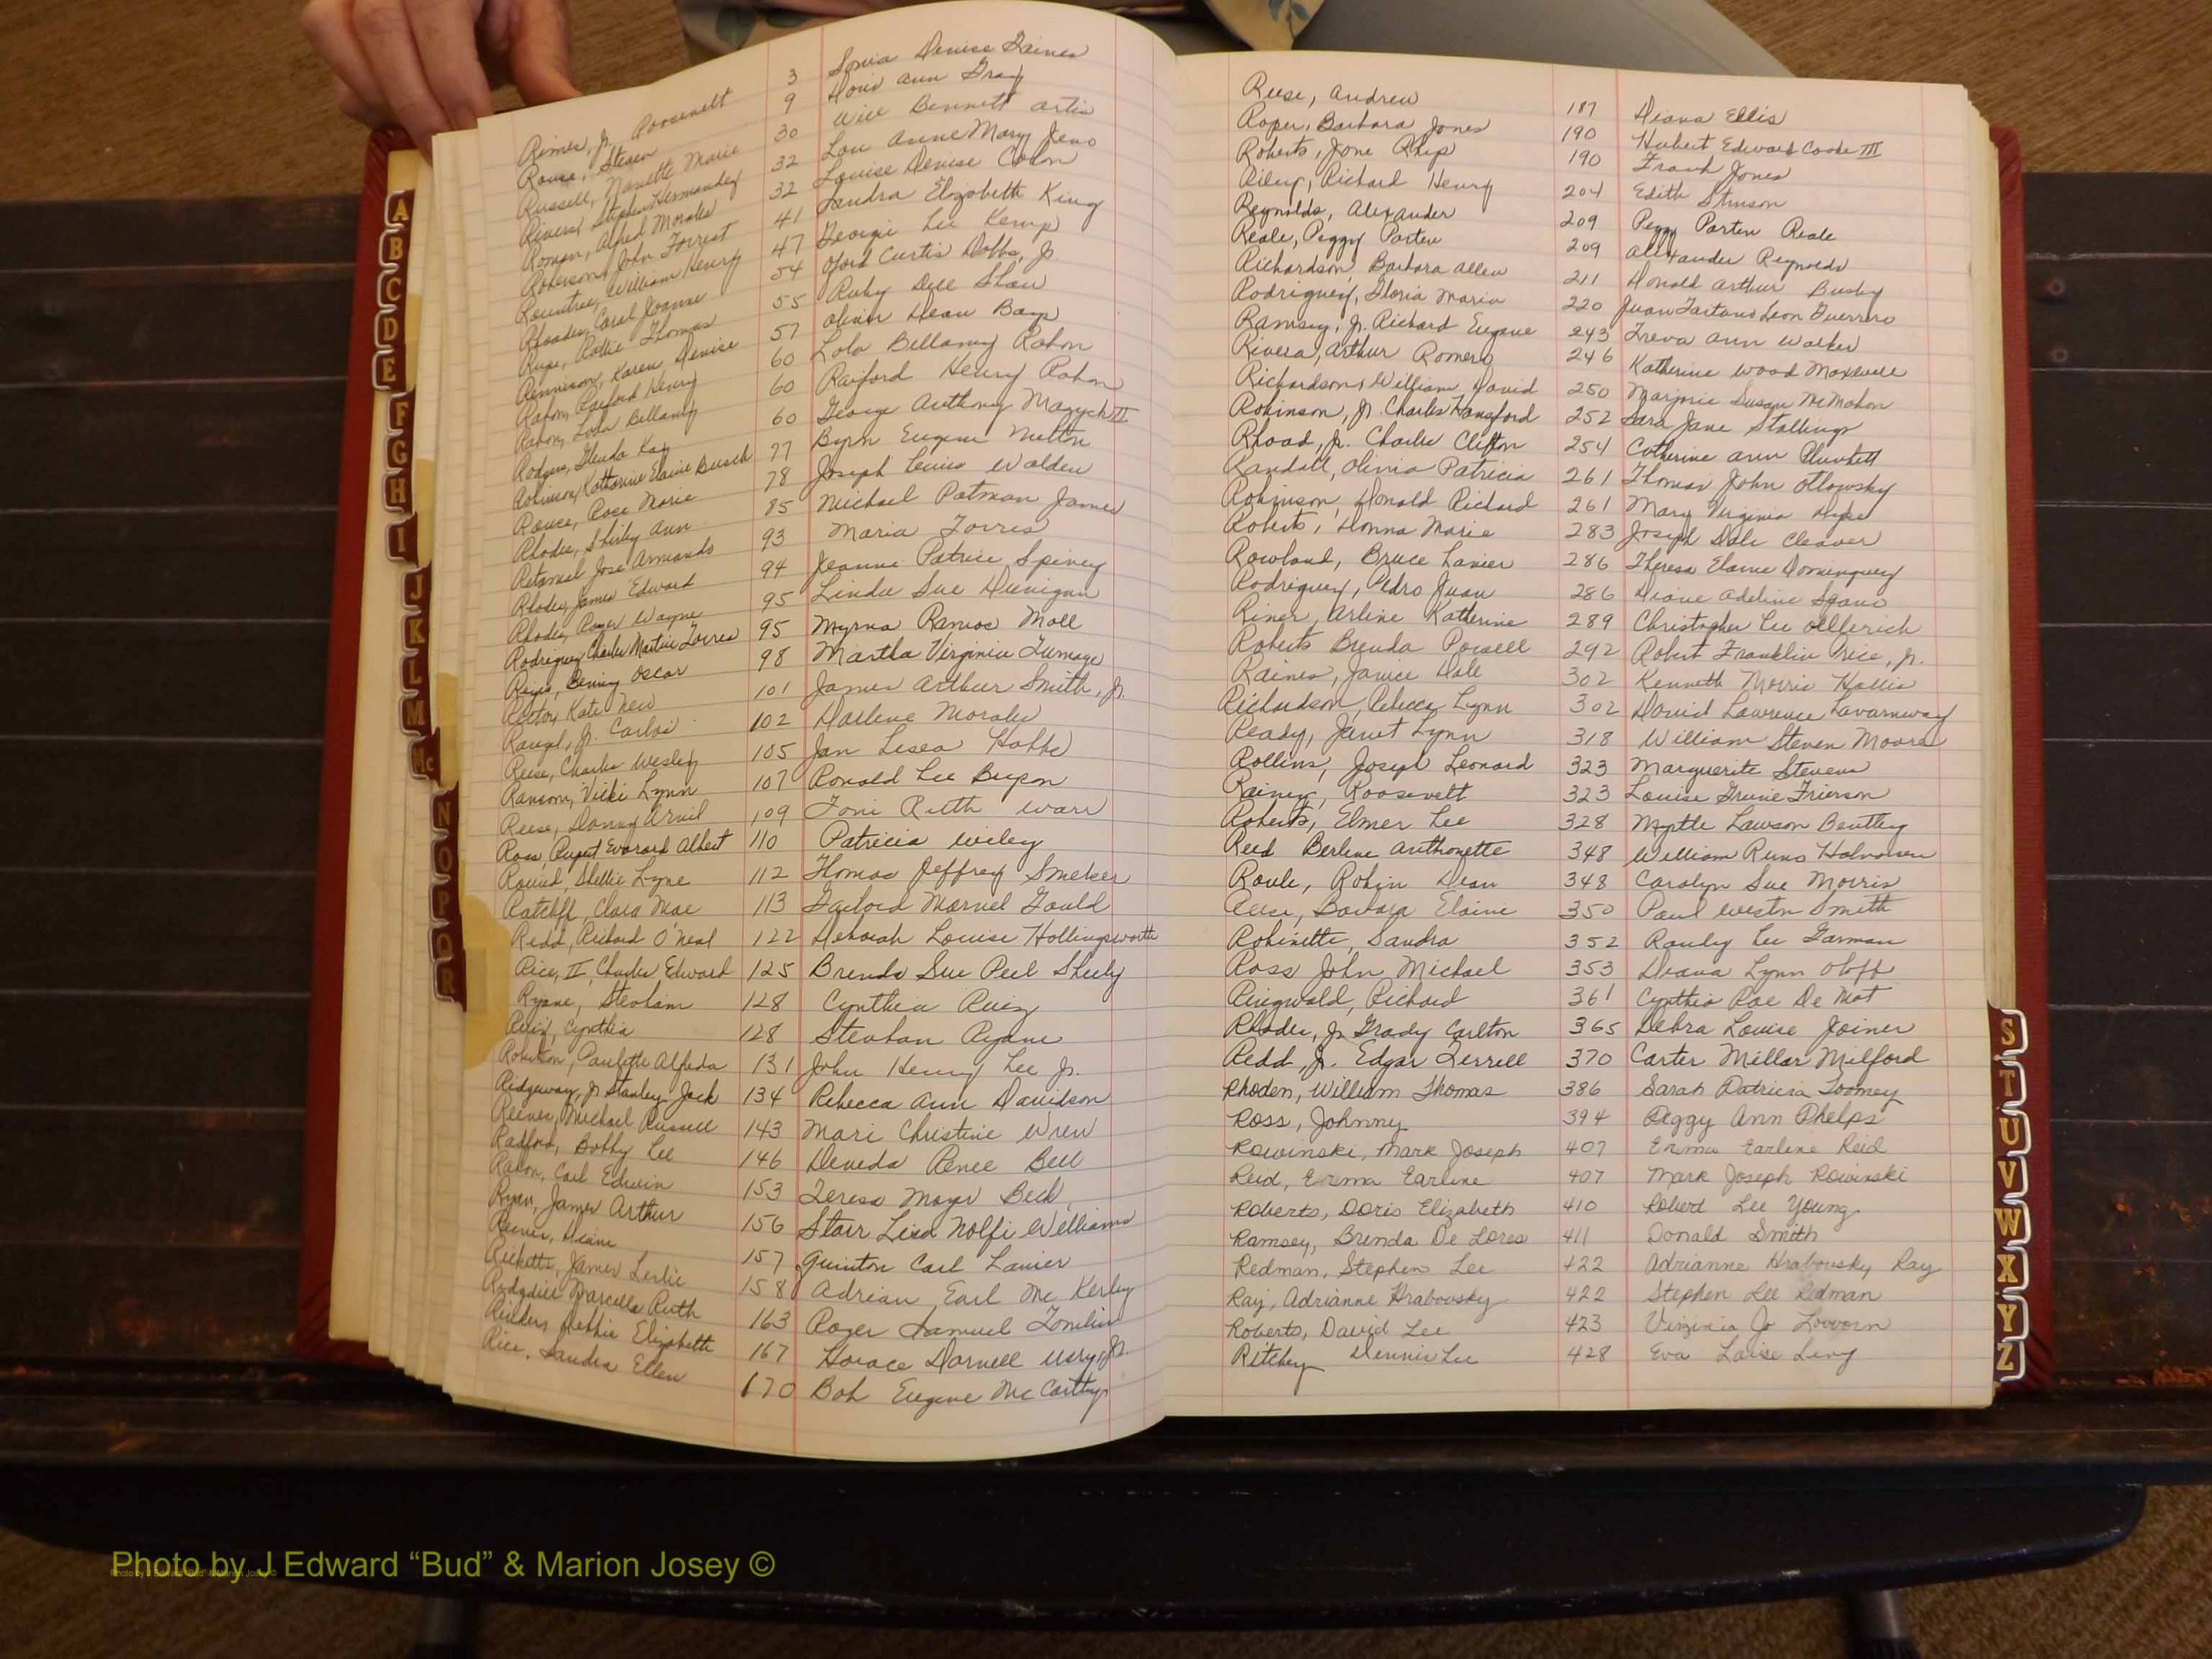 Rimes, Jr. Roosevelt 3 Sonia Denise Gaines
Rouse, Steven 9 Doris Ann Gray
Russell, Nanette Marie 30 Will Bennett Artis
Rivers, Stephen Hernandez 32 Lou Anne Mary
Roman, Alfred Morales 32 Louise Denise Colon
Roberson, John Forrest 41 Sandra Elizabeth King
Rountree, William Henry 47 Georgie Lee Kemp
Rhoades, Carol Joanne 54 Curtis Dobbs, Jr.
Rupe, Rollie Thomas 55 Ruby Dell Shaw
Rennison, Karen Denise 57 Oliver Dean Bays
Rabon, Raiford Henry 60 Lola Bellamy Rabon
Rabon, Lola Bellamy 60 Raiford Henry Rabon
Rodgers, Glenda Kay 60 George Anthony Mazyck III
Robinson, Katharine Elaine Busch 77 Byrn Eugene Melton
Rouce, Rose Marie 78 Joseph Lewis Walden
Rhodes, Shirley Ann 85 Michael Patman James
Retamal, Jose Armando 93 Maria Torres
Rhodes, James Edward 94 Jeanne Patrice Spivey
Rhodes, Roger Wayne 95 Linda Sue Dunigan
Rodriguez, Charles Martin Torres 95 Myrna Ramos Moll
Reyes, Benny Oscar 98 Martha Virginia Turnage
Rector, Kate New 101 James Arthur Smith, Jr.
Rangel, Jr. Carlos 102 Darlene Morales
Reese, Charles Wesley 105 Jan Lisea Hobbs
Ransom, Vicki Lynn 107 Ronald Lee Bryson
Reese, Danny Arvil 109 Toni Ruth Ware
Ross, August Evorard Albert 110 Patricia Wiley
Round, Shellie Lyne 112 Thomas Jeffrey Smelser
Ratcliff, Clara Mae 113 Gaylord Marvel Gould
Redd, Richard O'Neal 122 Deborah Louise Hollingsworth
Rice, II, Charles Edward 125 Brenda Sue Peel Sheely
Ryane, Stevham 128 Cynthia Ruiz
Ruiz, Cynthia 128 Stevhan Ryane
Robertson, Paulette Alfreda 131 John Henry Lee Jr.
Ridgeway, Jr. Stanley Jack 134 Rebecca Ann Davidson
Reeves, Michael Russell 143 Mari Christine Wren
Radford, Bobby Lee 146 Deneda Renee Bell
Rabon, Carl Edwin 153 Teresa Mayer Beck
Ryan, James Arthur 156 Starr Lisa Nolfi Williams
Reever, Diane 157 Quinton Carl Lanier
Ricketts, James Leslie 158 Adrian Earl McKerley
Marcella Ruth 163 Roger Samuel Tomlin
Debbie Elizabeth 167 Horace Darnell Usry, Jr.
Rice, Sandra Ellen 170 Bob Eugene McCarthy
Reese, Andrew 187 Diana Ellis
Roper, Barbara Jones 190 Hubert Edward Cooke III
Roberts, Jone 190 Frank Jones
Riley, Richard Henry 204 Edith Stinson
Reynolds, Alexander 209 Peggy Parten Reale
Reale, Peggy Parten 209 Alexander Reynolds
Richardson, Barbara Allen 211 Donald Arthur Busby
Rodriguez, Gloria Maria 220 Juan Taitano Leon Guerrero
Ramsey, Jr. Richard Eugene 243 Treva Ann Walker
Rivera, Arthur Romero 246 Katherine Wood Maxwell
Richardson, William David 250 Marjorie Susan McMahon
Robinson, Jr. Charles Hansford 252 Sara Jane Stallings
Rhoad, Jr. Charles Clifton 254 Catherine Ann Plunkett
Randall, Olivia Patricia 261 Thomas John Ottowsky
Robinson, Donald Richard 261 Mary Virginia
Roberts, Donna Marie 283 Joseph Dale Cleaver
Rowland, Bruce Lanier 286 Theresa Elaine Dominguez
Rodriguez, Pedro Juan 286 Diane Adeline Spano
Riner, Arline Katherine 289 Christopher Lee Ollerich
Roberts Brenda Powell 292 Robert Franklin Rice, Jr.
Raines, Janice Dale 302 Kenneth Morris Hollis
Richardson, Rebecca Lynn 302 David Lawrence Lavarnway
Ready, Janet Lynn 318 William Steven Moore
Rollins, Joseph Leonard 323 Marguerite Stevens
Rainey, Roosevelt 323 Louise Grunie Frierson
Roberts, Elmer Lee 328 Myrtle Lawson Bentley
Reed Berline Anthonette 348 William Runo Halvorsen
Roule, Robin Dean 348 Carolyn Sue Morris
Reese, Barbara Elaine 350 Paul Westn Smith
Robinette, Sandra 352 Randy Lee Garman
Ross John Michael 353 Deana Lynn Oloff
Ringwald, Richard 361 Cynthia Rae De Mot
Rhodes, Jr. Grady Carlton 365 Debra Louise Joiner
Redd, Jr. Edgar Terrell 370 Carter Millar Milford
Rhoden, William Thomas 386 Sarah Patricia Toomey
Ross, Johnny 394 Peggy Ann Phelps
Rowinski, Mark Joseph 407 Erma Earline Reid
Reid, Erma Earline 407 Mark Joseph Rowinski
Roberts, Doris Elizabeth 410 Robert Lee Young
Ramsey, Brenda De Lores 411 Donald Smith
Redman, Stephen Lee 422 Adrianne Hrabovsky Ray
Ray, Adrianne Hrabovsky 422 Stephen Lee Redman
Roberts, David Lee 423 Virginia Jo Lovvorn
Ritchey Dennis Lee 428 Eva Loise Levy
A
B
C
D
E
F
G
H
I
J
K
L
M
Mc
N
O
P
Q
R
S
T
U
V
W
X
Y
Z
Photo by J Edward “Bud” & Marion Josey ©
Photo by J Edward “Bud” & Marion Josey ©